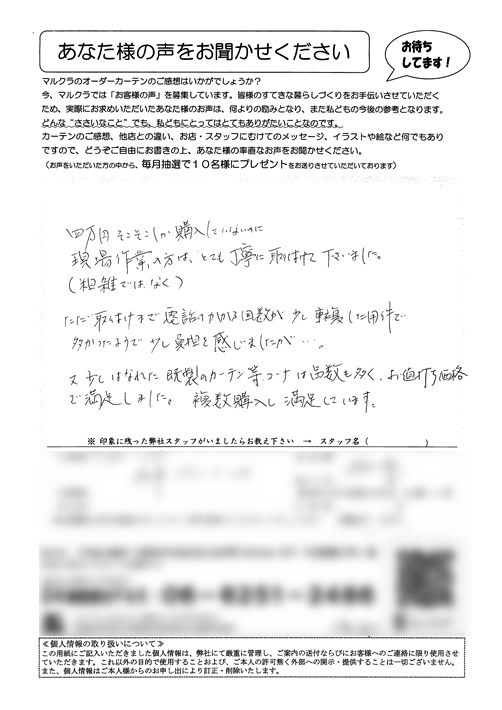 あなた様の声をお聞かせください
お待ち
してます!
マルクラのオーダーカーテンのご感想はいかがでしょうか?
今、マルクラでは「お客様の声」を募集しています。皆様のすてきな暮らしづくりをお手伝いさせていただく
ため、実際にお求めいただいたあなた様のお声は、何よりの励みとなり、また私どもの今後の参考となります。
どんな“ささいなこと”でも、私どもにとってはとてもありがたいことなのです。
カーテンのご感想、他店との違い、お店・スタッフにむけてのメッセージ、イラストや絵など何でもあり
ですので、どうぞご自由にお書きの上、あなた様の率直なお声をお聞かせください。
(お声をいただいた方の中から、毎月抽選で10名様にプレゼントをお送りさせていただいております)
四万円そこそこしか購入していないのに
現場作業の方は、とても丁寧に取付けて下さいました。
(粗雑ではなく)
ただ取付けまで電話かかる回数が少し重複した用件で
多かったようで少し負担を感じましたが…。
又少しはなれた既製のカーテン等コーナは品数も多く、お値打ち価格
で満足しました。複数購入し満足しています。
※ 印象に残った弊社スタッフがいましたらお教え下さい → スタッフ名( )
06-6251-2486
≪個人情報の取り扱いについて≫
この用紙にご記入いただきました個人情報は、弊社にて厳重に管理し、ご案内の送付ならびにお客様へのご連絡に限り使用させ
ていただきます。これ以外の目的で使用することおよび、ご本人の許可無く外部への開示・提供することは一切ございません。
また、個人情報はご本人様からのお申し出により訂正・削除いたします。